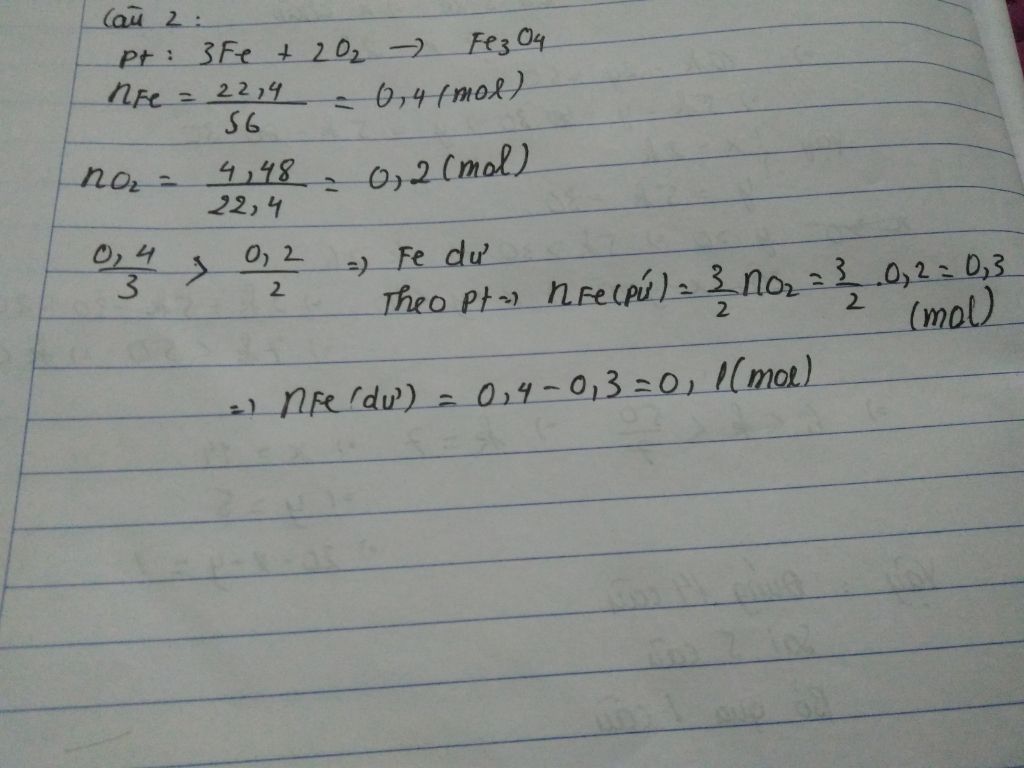 Câu 2 :
pt : 3Fe + 2O₂ → Fe₃O₄
nFe = 22,4/56 = 0,4 (mol)
nO₂ = 4,48/22,4 = 0,2 (mol)
0,4/3 > 0,2/2 => Fe dư
Theo pt => nFe(pứ) = 3/2 nO₂ = 3/2 . 0,2 = 0,3 (mol)
=> nFe (dư) = 0,4 - 0,3 = 0,1 (mol)